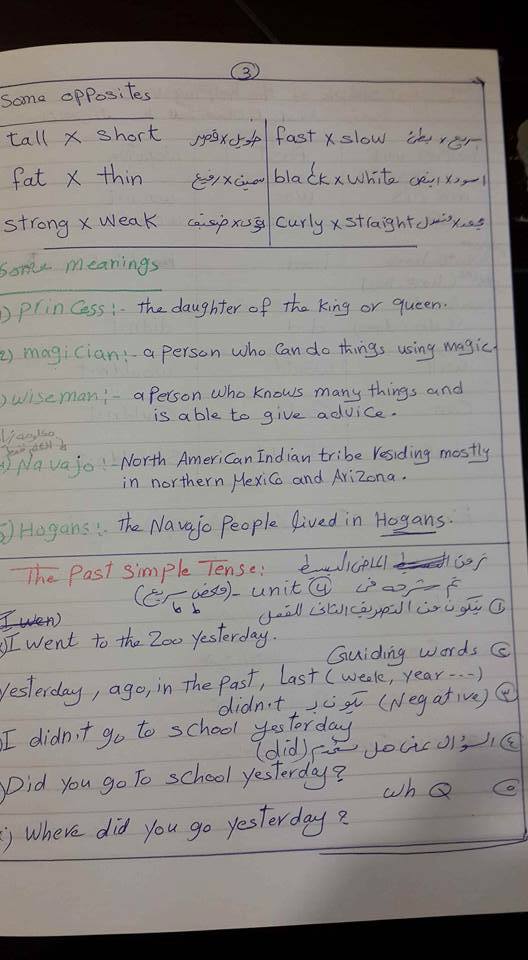 3
Some opposites
tall x short طويل x قصير fast x slow سريع x بطئ
fat x thin سمين x رفيع black x white اسود x ابيض
strong x weak قوى x ضعيف curly x straight
Some meanings
1) Princess:- the daughter of the King or queen.
2) magician:- a person who can do things using magic.
) wiseman:- a person who knows many things and
is able to give advice.
) Navajo:- North American Indian tribe residing mostly
in northern Mexico and Arizona.
5) Hogans:- the Navajo People lived in Hogans.
The Past Simple Tense: زمن الماضى البسيط
تم شرحه فى unit 4 - (سريع)
I wen) ① يتكون من التصريف الثانى للفعل
) I went to the Zoo yesterday.
Guiding words ②
yesterday, ago, in the past, last (week, year ---)
didn't تكون بـ (Negative) ③
) I didn't go to school yesterday
(did) السؤال عن هل نستخدم ④
) Did you go To school yesterday?
wh Q ⑤
) Where did you go yesterday?